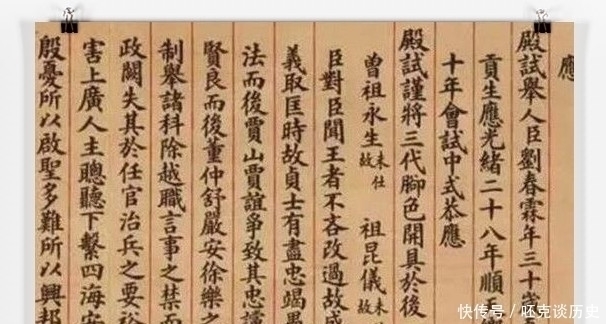 應
殿試舉人臣劉春霖年三十歲
貢生應光緒二十八年順
十年會試中式恭應
殿試謹將三代腳色開具於後
曾祖永生未仕故 祖昆儀未仕故
臣對臣聞王者不吝改過故
義取匡時故貞士有盡忠竭
法而後賈山賈誼爭致其忠
賢良而後董仲舒嚴安徐樂之
制舉諸科除越職言事之禁而
政闕失其於任官治兵之要
害上廣人主聰聽下繫四海安
殷憂所以啟聖多難所以興邦
快传号 / 呸克谈历史